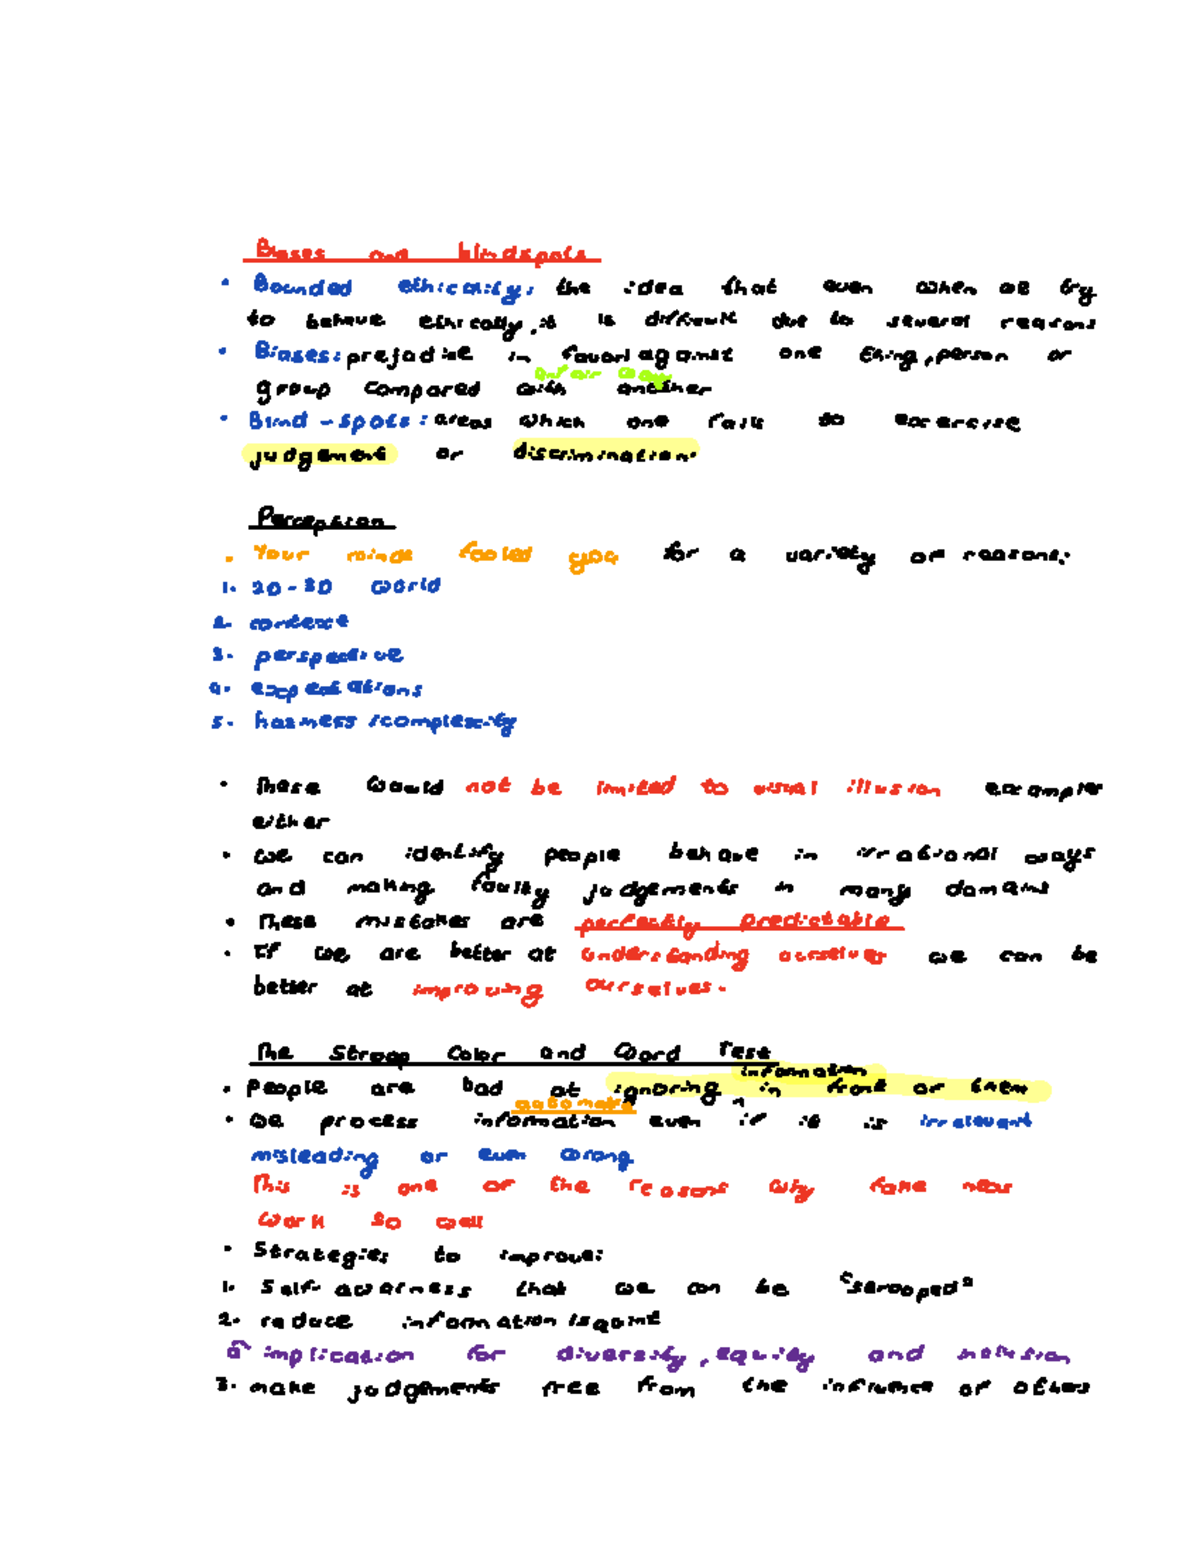 Biases and blindspots
• Bounded ethicality: the idea that even when we try
to behave ethically, it is difficult due to several reasons
• Biases: prejudice in favour/against one thing, person or
unfair way
group compared with another
• Blind-spots: areas which one fails to excercise
judgement or discrimination.
Perception
. Your minds fooled you for a variety of reasons:
1. 2D-3D world
2. context
3. perspective
4. expectations
5. /complexity
• These would not be limited to visual illusion examples
either
• we can identify people behave in irrational ways
and making faulty judgements in many domains
• These mistakes are perfectly predictable
• If we are better at understanding ourselves we can be
better at improving ourselves.
The Stroop Color and Word Test
information
• People are bad at ignoring ^ in front of them
automatic
• we process information even if it is irrelevant
misleading or even wrong
This is one of the reasons why fake news
work so well
• Strategies to improve:
1. Self-awarness that we can be "strooped"
2. reduce information
implication for diversity, equity and inclusion
3. make judgements free from the influence of others